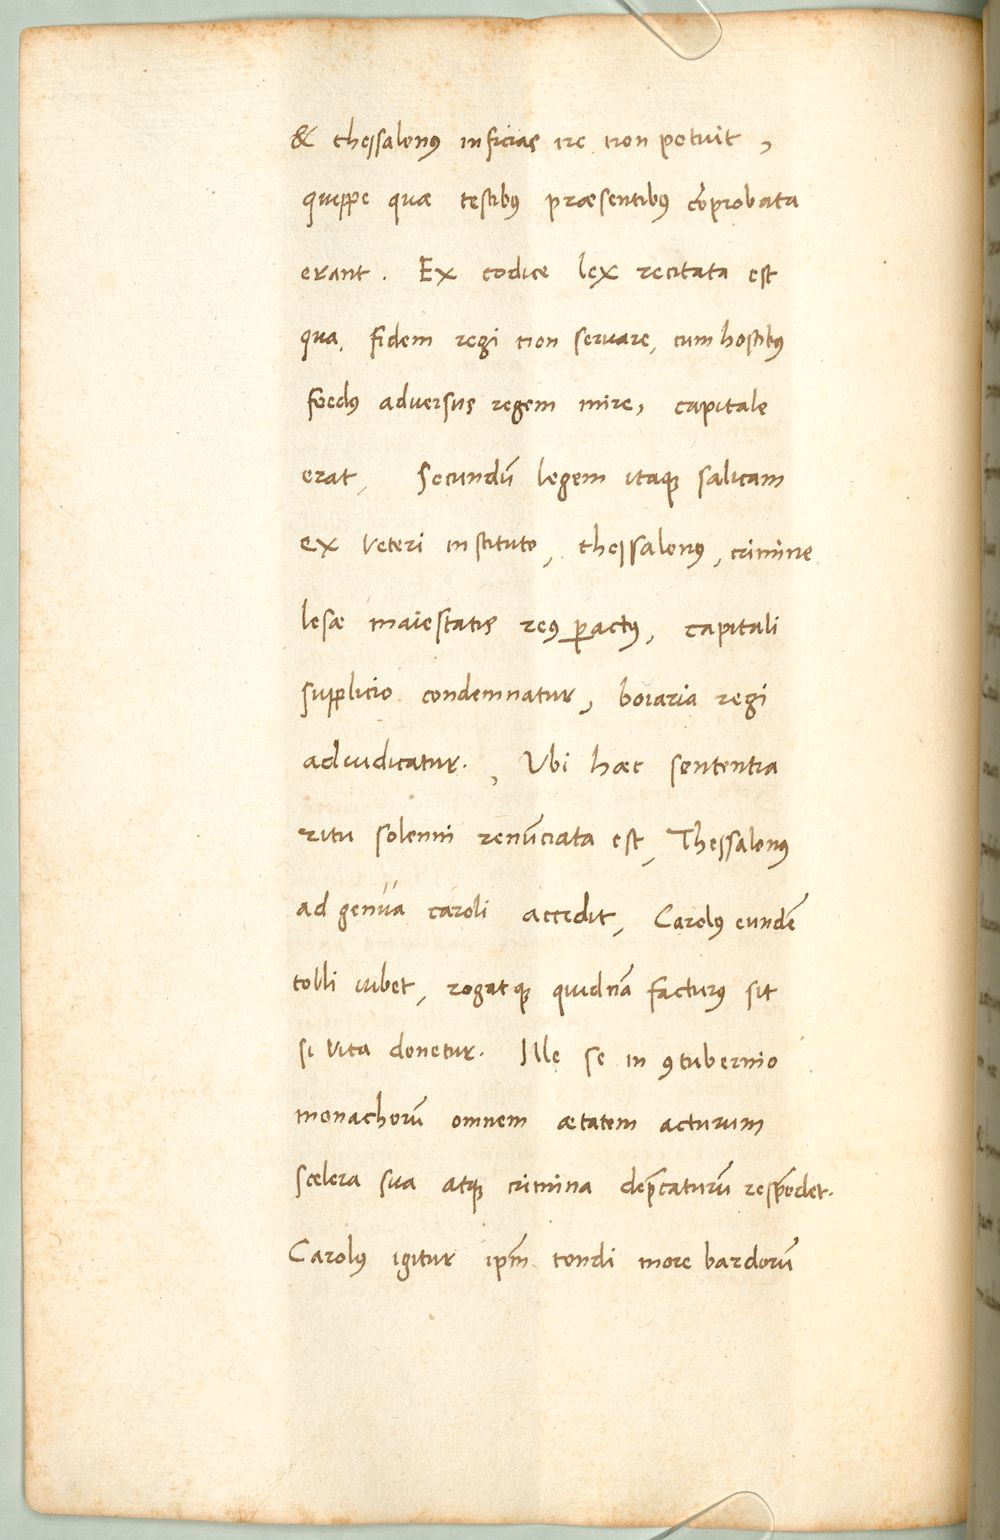 & thessalonꝯ inficias ire non potuit ,
quippe quæ testibꝯ præsentibꝯ cōprobata
erant . Ex codice lex recitata est
qua, fidem regi non servare, cum hostibꝯ
foedꝯ adversus regem inire, capitale
erat, Secundū legem itaqꝫ salicam
ex veteri instituto, thessalonꝯ, crimine
lesæ maiestatis reꝯ ꝑactꝯ, capitali
supplicio condemnatur, boiaria regi
adiudicatur. , Vbi hæc sententia
ritu solenni renūciata est, Thessalonꝯ
ad genua caroli accidit, Carolꝯ eundē
tolli iubet, rogatqꝫ quidnā facturꝯ sit
si vita donetur. Ille se in ꝯtubernio
monachorū omnem ætatem acturum
scelera sua atqꝫ crimina dep̄caturū respōdet.
Carolꝯ igitur ip̄m tondi more bardorū